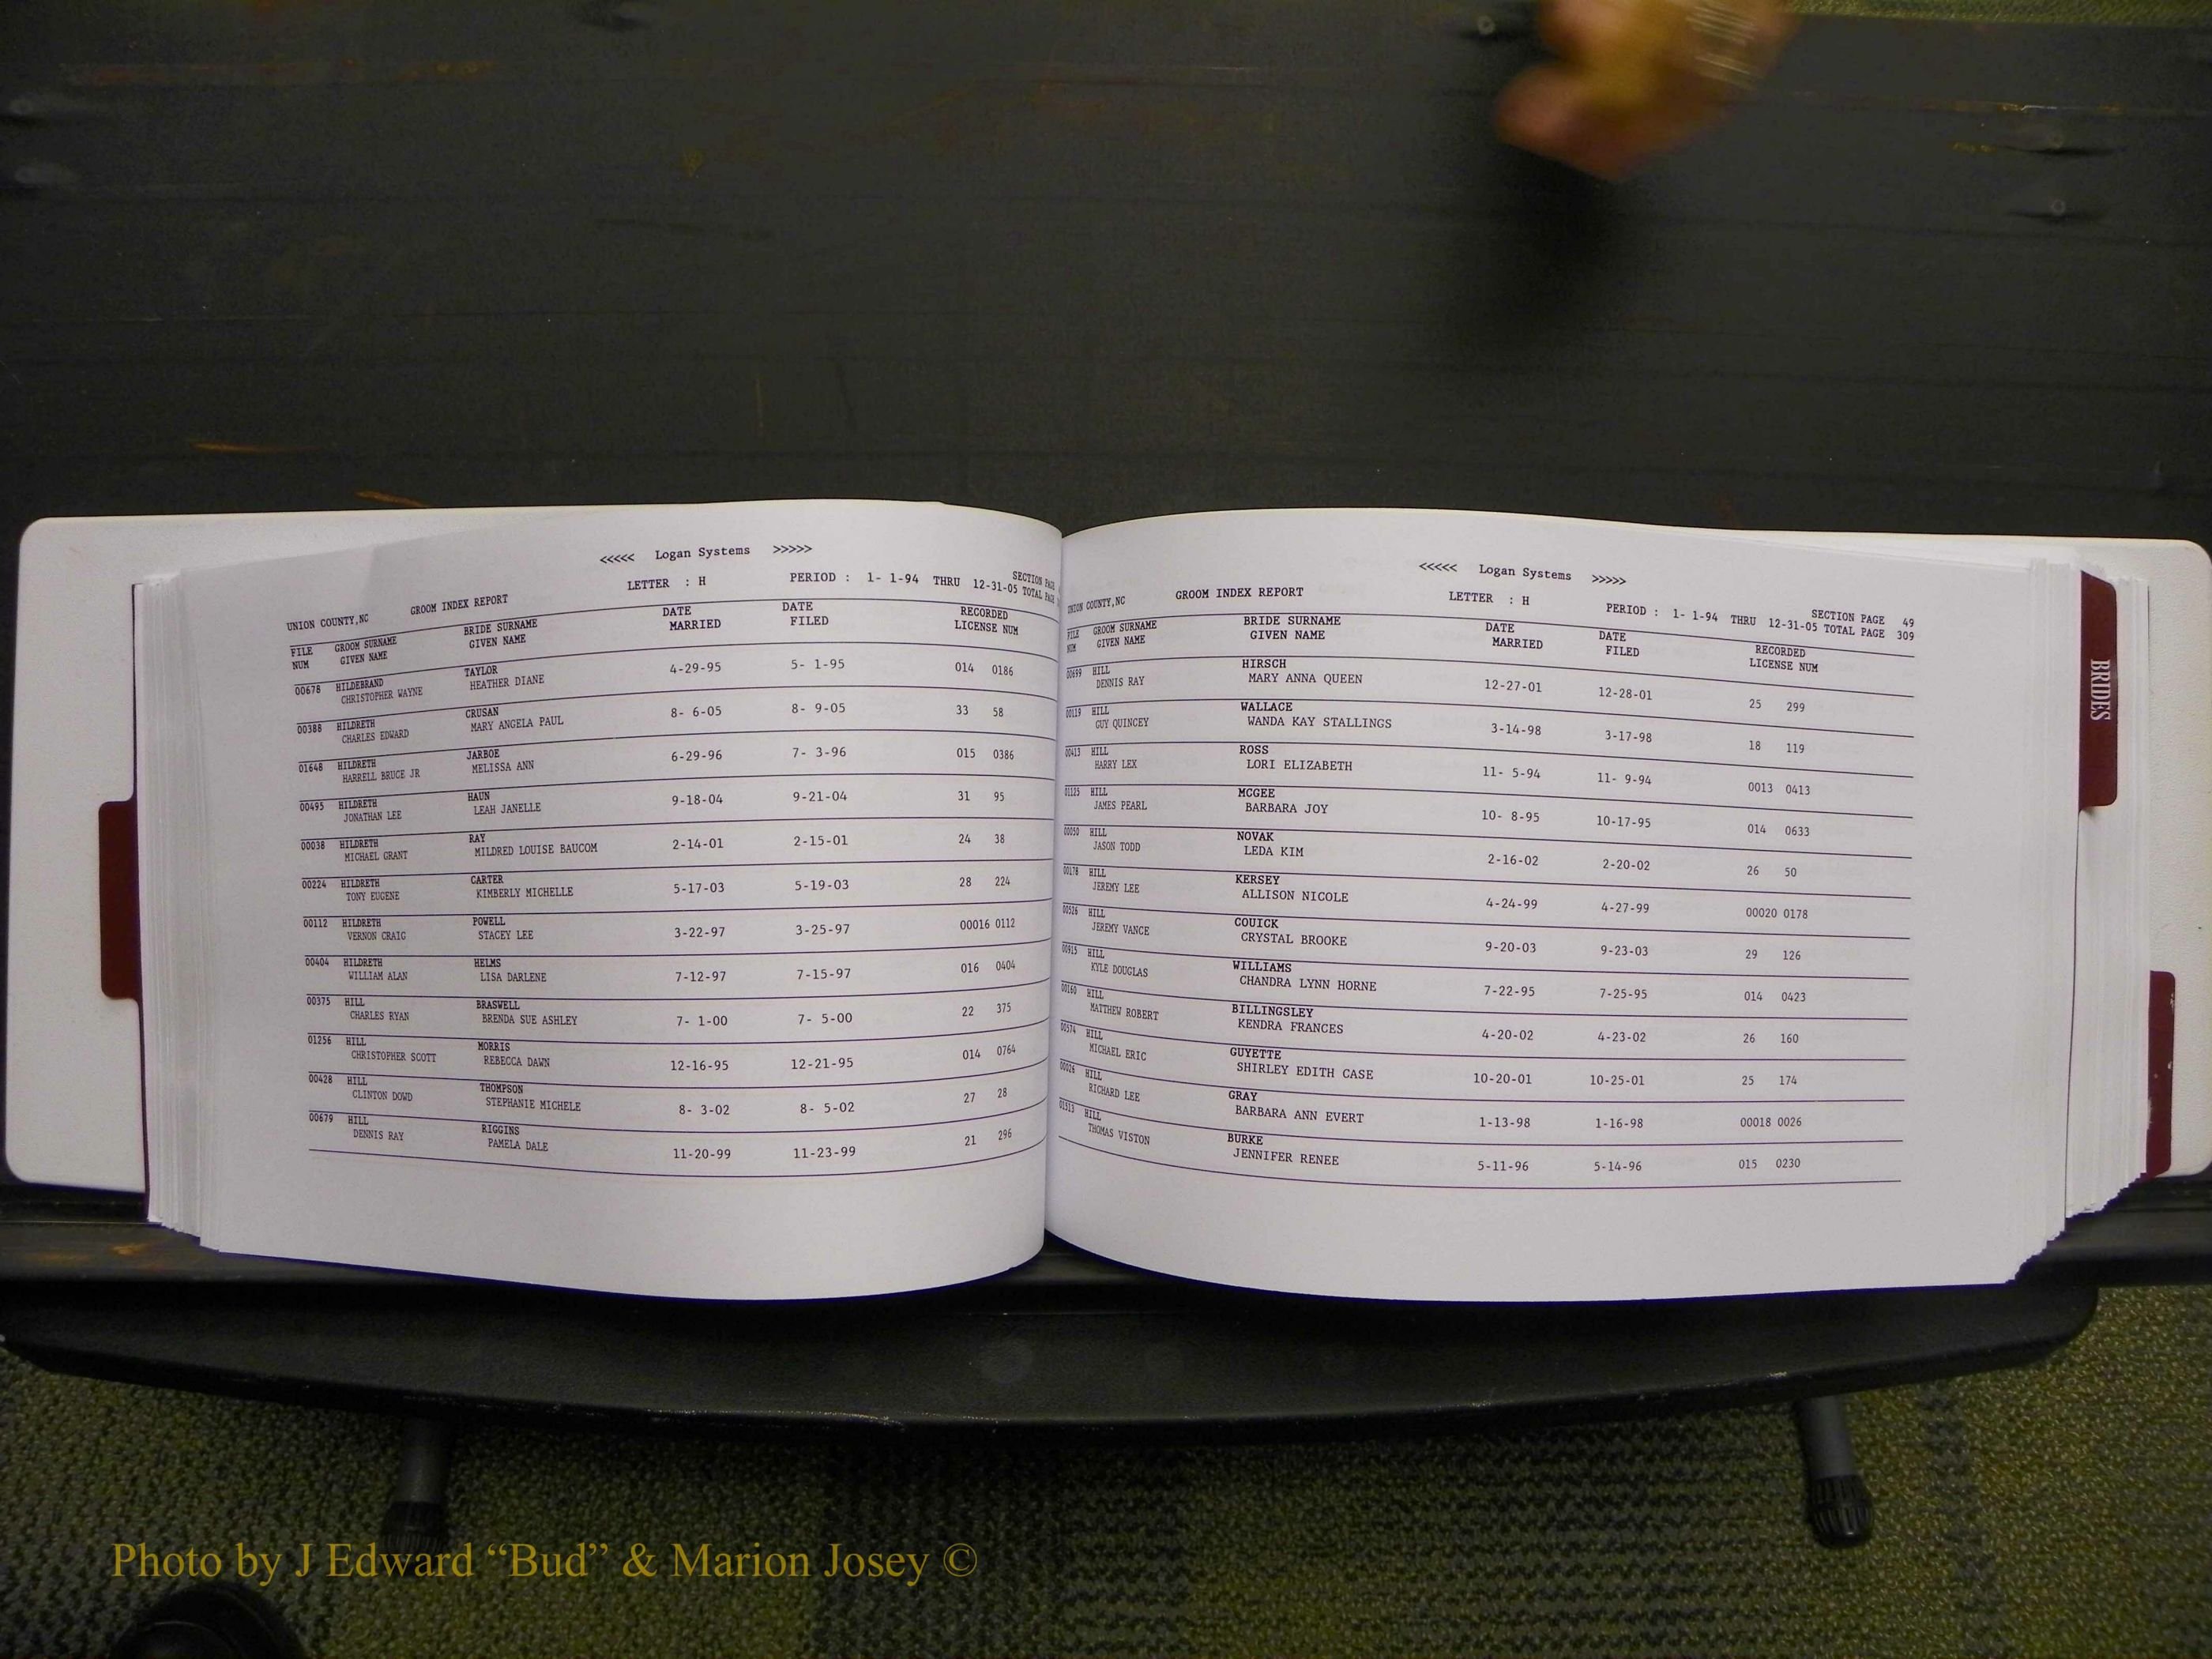 <<<<< Logan Systems >>>>>
UNION COUNTY,NC GROOM INDEX REPORT LETTER : H PERIOD : 1- 1-94 THRU 12-31-05 SECTION PAGE
TOTAL PAGE
FILE GROOM SURNAME BRIDE SURNAME DATE DATE RECORDED
NUM GIVEN NAME GIVEN NAME MARRIED FILED LICENSE NUM
00678 HILDEBRAND TAYLOR
CHRISTOPHER WAYNE HEATHER DIANE 4-29-95 5- 1-95 014 0186
00388 HILDRETH CRUSAN
CHARLES EDWARD MARY ANGELA PAUL 8- 6-05 8- 9-05 33 58
01648 HILDRETH JARBOE
HARRELL BRUCE JR MELISSA ANN 6-29-96 7- 3-96 015 0386
00495 HILDRETH HAUN
JONATHAN LEE LEAH JANELLE 9-18-04 9-21-04 31 95
00038 HILDRETH RAY
MICHAEL GRANT MILDRED LOUISE BAUCOM 2-14-01 2-15-01 24 38
00224 HILDRETH CARTER
TONY EUGENE KIMBERLY MICHELLE 5-17-03 5-19-03 28 224
00112 HILDRETH POWELL
VERNON CRAIG STACEY LEE 3-22-97 3-25-97 00016 0112
00404 HILDRETH HELMS
WILLIAM ALAN LISA DARLENE 7-12-97 7-15-97 016 0404
00375 HILL BRASWELL
CHARLES RYAN BRENDA SUE ASHLEY 7- 1-00 7- 5-00 22 375
01256 HILL MORRIS
CHRISTOPHER SCOTT REBECCA DAWN 12-16-95 12-21-95 014 0764
00428 HILL THOMPSON
CLINTON DOWD STEPHANIE MICHELE 8- 3-02 8- 5-02 27 28
00679 HILL RIGGINS
DENNIS RAY PAMELA DALE 11-20-99 11-23-99 21 296
<<<<< Logan Systems >>>>>
UNION COUNTY,NC GROOM INDEX REPORT LETTER : H PERIOD : 1- 1-94 THRU 12-31-05 SECTION PAGE 49
TOTAL PAGE 309
FILE GROOM SURNAME BRIDE SURNAME DATE DATE RECORDED
NUM GIVEN NAME GIVEN NAME MARRIED FILED LICENSE NUM
00699 HILL HIRSCH
DENNIS RAY MARY ANNA QUEEN 12-27-01 12-28-01 25 299
00119 HILL WALLACE
GUY QUINCEY WANDA KAY STALLINGS 3-14-98 3-17-98 18 119
00413 HILL ROSS
HARRY LEX LORI ELIZABETH 11- 5-94 11- 9-94 0013 0413
01125 HILL MCGEE
JAMES PEARL BARBARA JOY 10- 8-95 10-17-95 014 0633
00050 HILL NOVAK
JASON TODD LEDA KIM 2-16-02 2-20-02 26 50
00178 HILL KERSEY
JEREMY LEE ALLISON NICOLE 4-24-99 4-27-99 00020 0178
00526 HILL COUICK
JEREMY VANCE CRYSTAL BROOKE 9-20-03 9-23-03 29 126
00915 HILL WILLIAMS
KYLE DOUGLAS CHANDRA LYNN HORNE 7-22-95 7-25-95 014 0423
00160 HILL BILLINGSLEY
MATTHEW ROBERT KENDRA FRANCES 4-20-02 4-23-02 26 160
00574 HILL GUYETTE
MICHAEL ERIC SHIRLEY EDITH CASE 10-20-01 10-25-01 25 174
00026 HILL GRAY
RICHARD LEE BARBARA ANN EVERT 1-13-98 1-16-98 00018 0026
01513 HILL BURKE
THOMAS VISTON JENNIFER RENEE 5-11-96 5-14-96 015 0230
BRIDES
Photo by J Edward “Bud” & Marion Josey ©